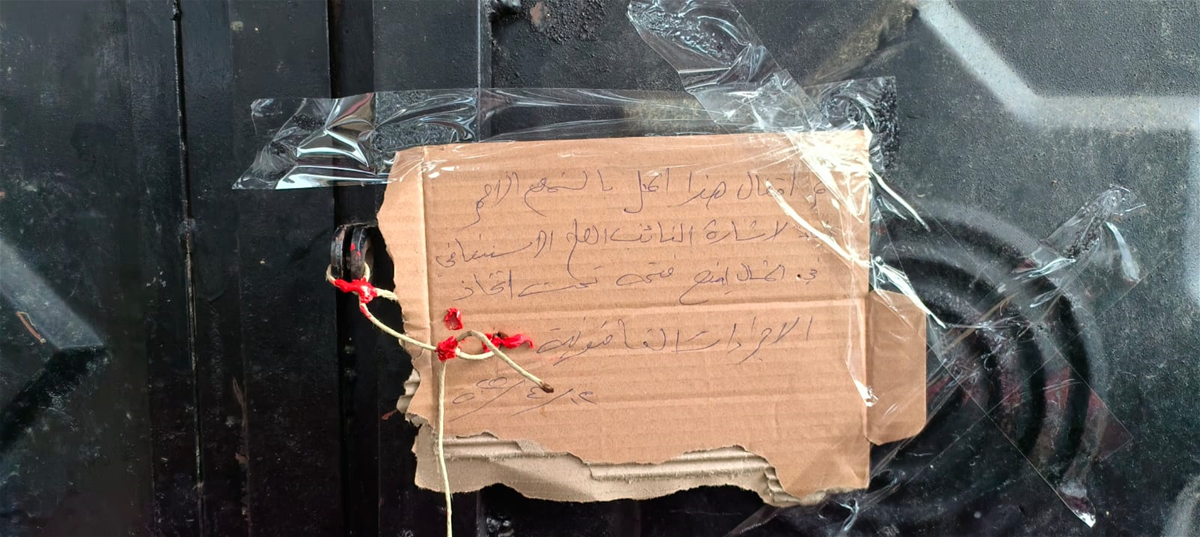 تم اقفال هذا المحل بالشمع الاحمر
لاشارة النائب العام الاستئنافي
في الشمال يمنع فتحه تحت اتخاذ
الاجراءات القانونية